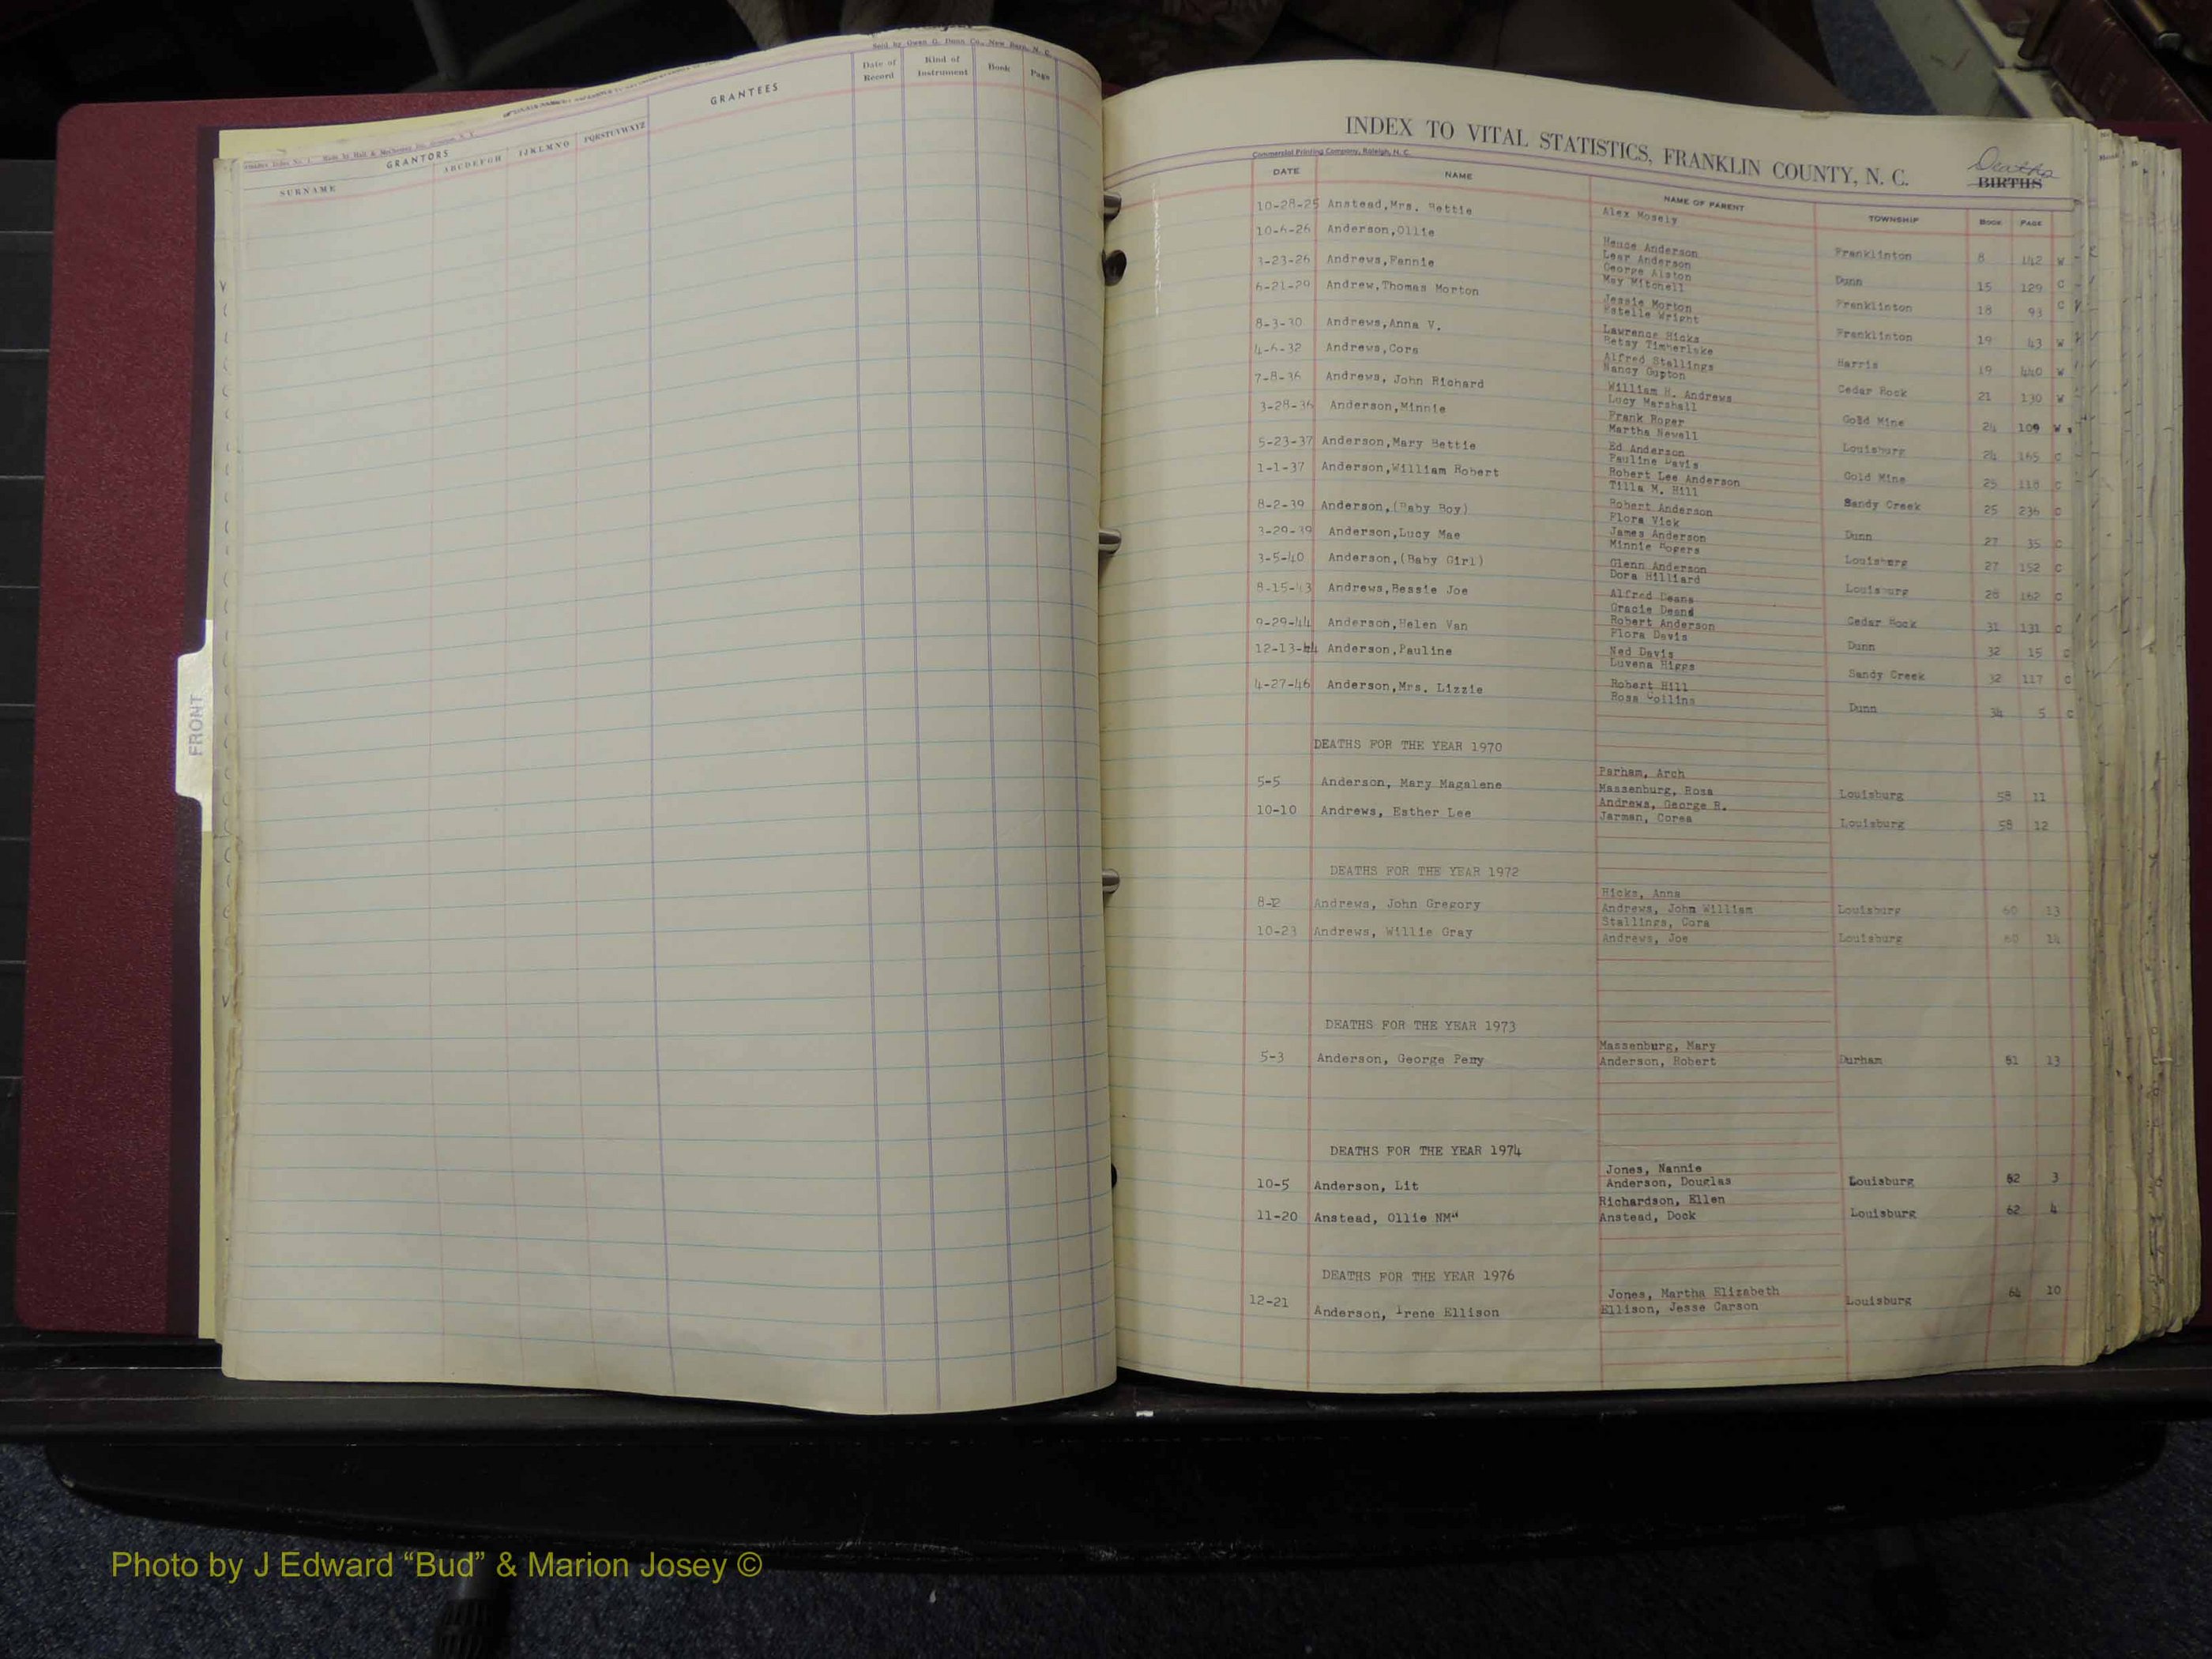 Sold by Owen G. Dunn Co., New Bern, N. C.
GRANTORS
SURNAME ABCDEFGH IJKLMNO PQRSTUVWXYZ
GRANTEES
Date of Record Kind of Instrument Book Page
FRONT
INDEX TO VITAL STATISTICS, FRANKLIN COUNTY, N. C.
Deaths
BIRTHS
Commercial Printing Company, Raleigh, N. C.
DATE NAME NAME OF PARENT TOWNSHIP BOOK PAGE
10-28-25 Anstead,Mrs. Bettie Alex Mosely Franklinton 8 142 W
10-6-26 Anderson,Ollie Hence Anderson
Lear Anderson Dunn 15 129 C
3-23-26 Andrews,Fannie George Alston
May Mitchell Franklinton 18 93 C
6-21-29 Andrew,Thomas Morton Jessie Morton
Estelle Wright Franklinton 19 43 W
8-3-30 Andrews,Anna V. Lawrence Hicks
Betsy Timberlake Harris 19 440 W
4-6-32 Andrews,Cora Alfred Stallings
Nancy Gupton Cedar Rock 21 130 W
7-8-36 Andrews, John Richard William H. Andrews
Lucy Marshall Gold Mine 24 109 W
3-28-36 Anderson,Minnie Frank Roger
Martha Newell Louisburg 24 165 C
5-23-37 Anderson,Mary Bettie Ed Anderson
Pauline Davis Gold Mine 25 118 C
1-1-37 Anderson,William Robert Robert Lee Anderson
Tilla M. Hill Sandy Creek 25 236 C
8-2-39 Anderson,(Baby Boy) Robert Anderson
Flora Vick Dunn 27 35 C
3-29-39 Anderson,Lucy Mae James Anderson
Minnie Rogers Louisburg 27 152 C
3-5-40 Anderson,(Baby Girl) Glenn Anderson
Dora Hilliard Louisburg 28 162 C
8-15-43 Andrews,Bessie Joe Alfred Deans
Gracie Deand Cedar Rock 31 131 C
9-29-44 Anderson,Helen Van Robert Anderson
Flora Davis Dunn 32 15 C
12-13-44 Anderson,Pauline Ned Davis
Luvena Higgs Sandy Creek 32 117 C
4-27-46 Anderson,Mrs. Lizzie Robert Hill
Rosa Collins Dunn 34 5 C
DEATHS FOR THE YEAR 1970
Parham, Arch
5-5 Anderson, Mary Magalene Massenburg, Rosa Louisburg 58 11
Andrews, George R.
10-10 Andrews, Esther Lee Jarman, Corea Louisburg 58 12
DEATHS FOR THE YEAR 1972
Hicks, Anna
8-12 Andrews, John Gregory Andrews, John William Louisburg 60 13
Stallings, Cora
10-23 Andrews, Willie Gray Andrews, Joe Louisburg 60 14
DEATHS FOR THE YEAR 1973
Massenburg, Mary
5-3 Anderson, George Perry Anderson, Robert Durham 61 13
DEATHS FOR THE YEAR 1974
Jones, Nannie
10-5 Anderson, Lit Anderson, Douglas Louisburg 62 3
Richardson, Ellen
11-20 Anstead, Ollie NM" Anstead, Dock Louisburg 62 4
DEATHS FOR THE YEAR 1976
Jones, Martha Elizabeth
12-21 Anderson, Irene Ellison Ellison, Jesse Carson Louisburg 64 10
Photo by J Edward “Bud” & Marion Josey ©